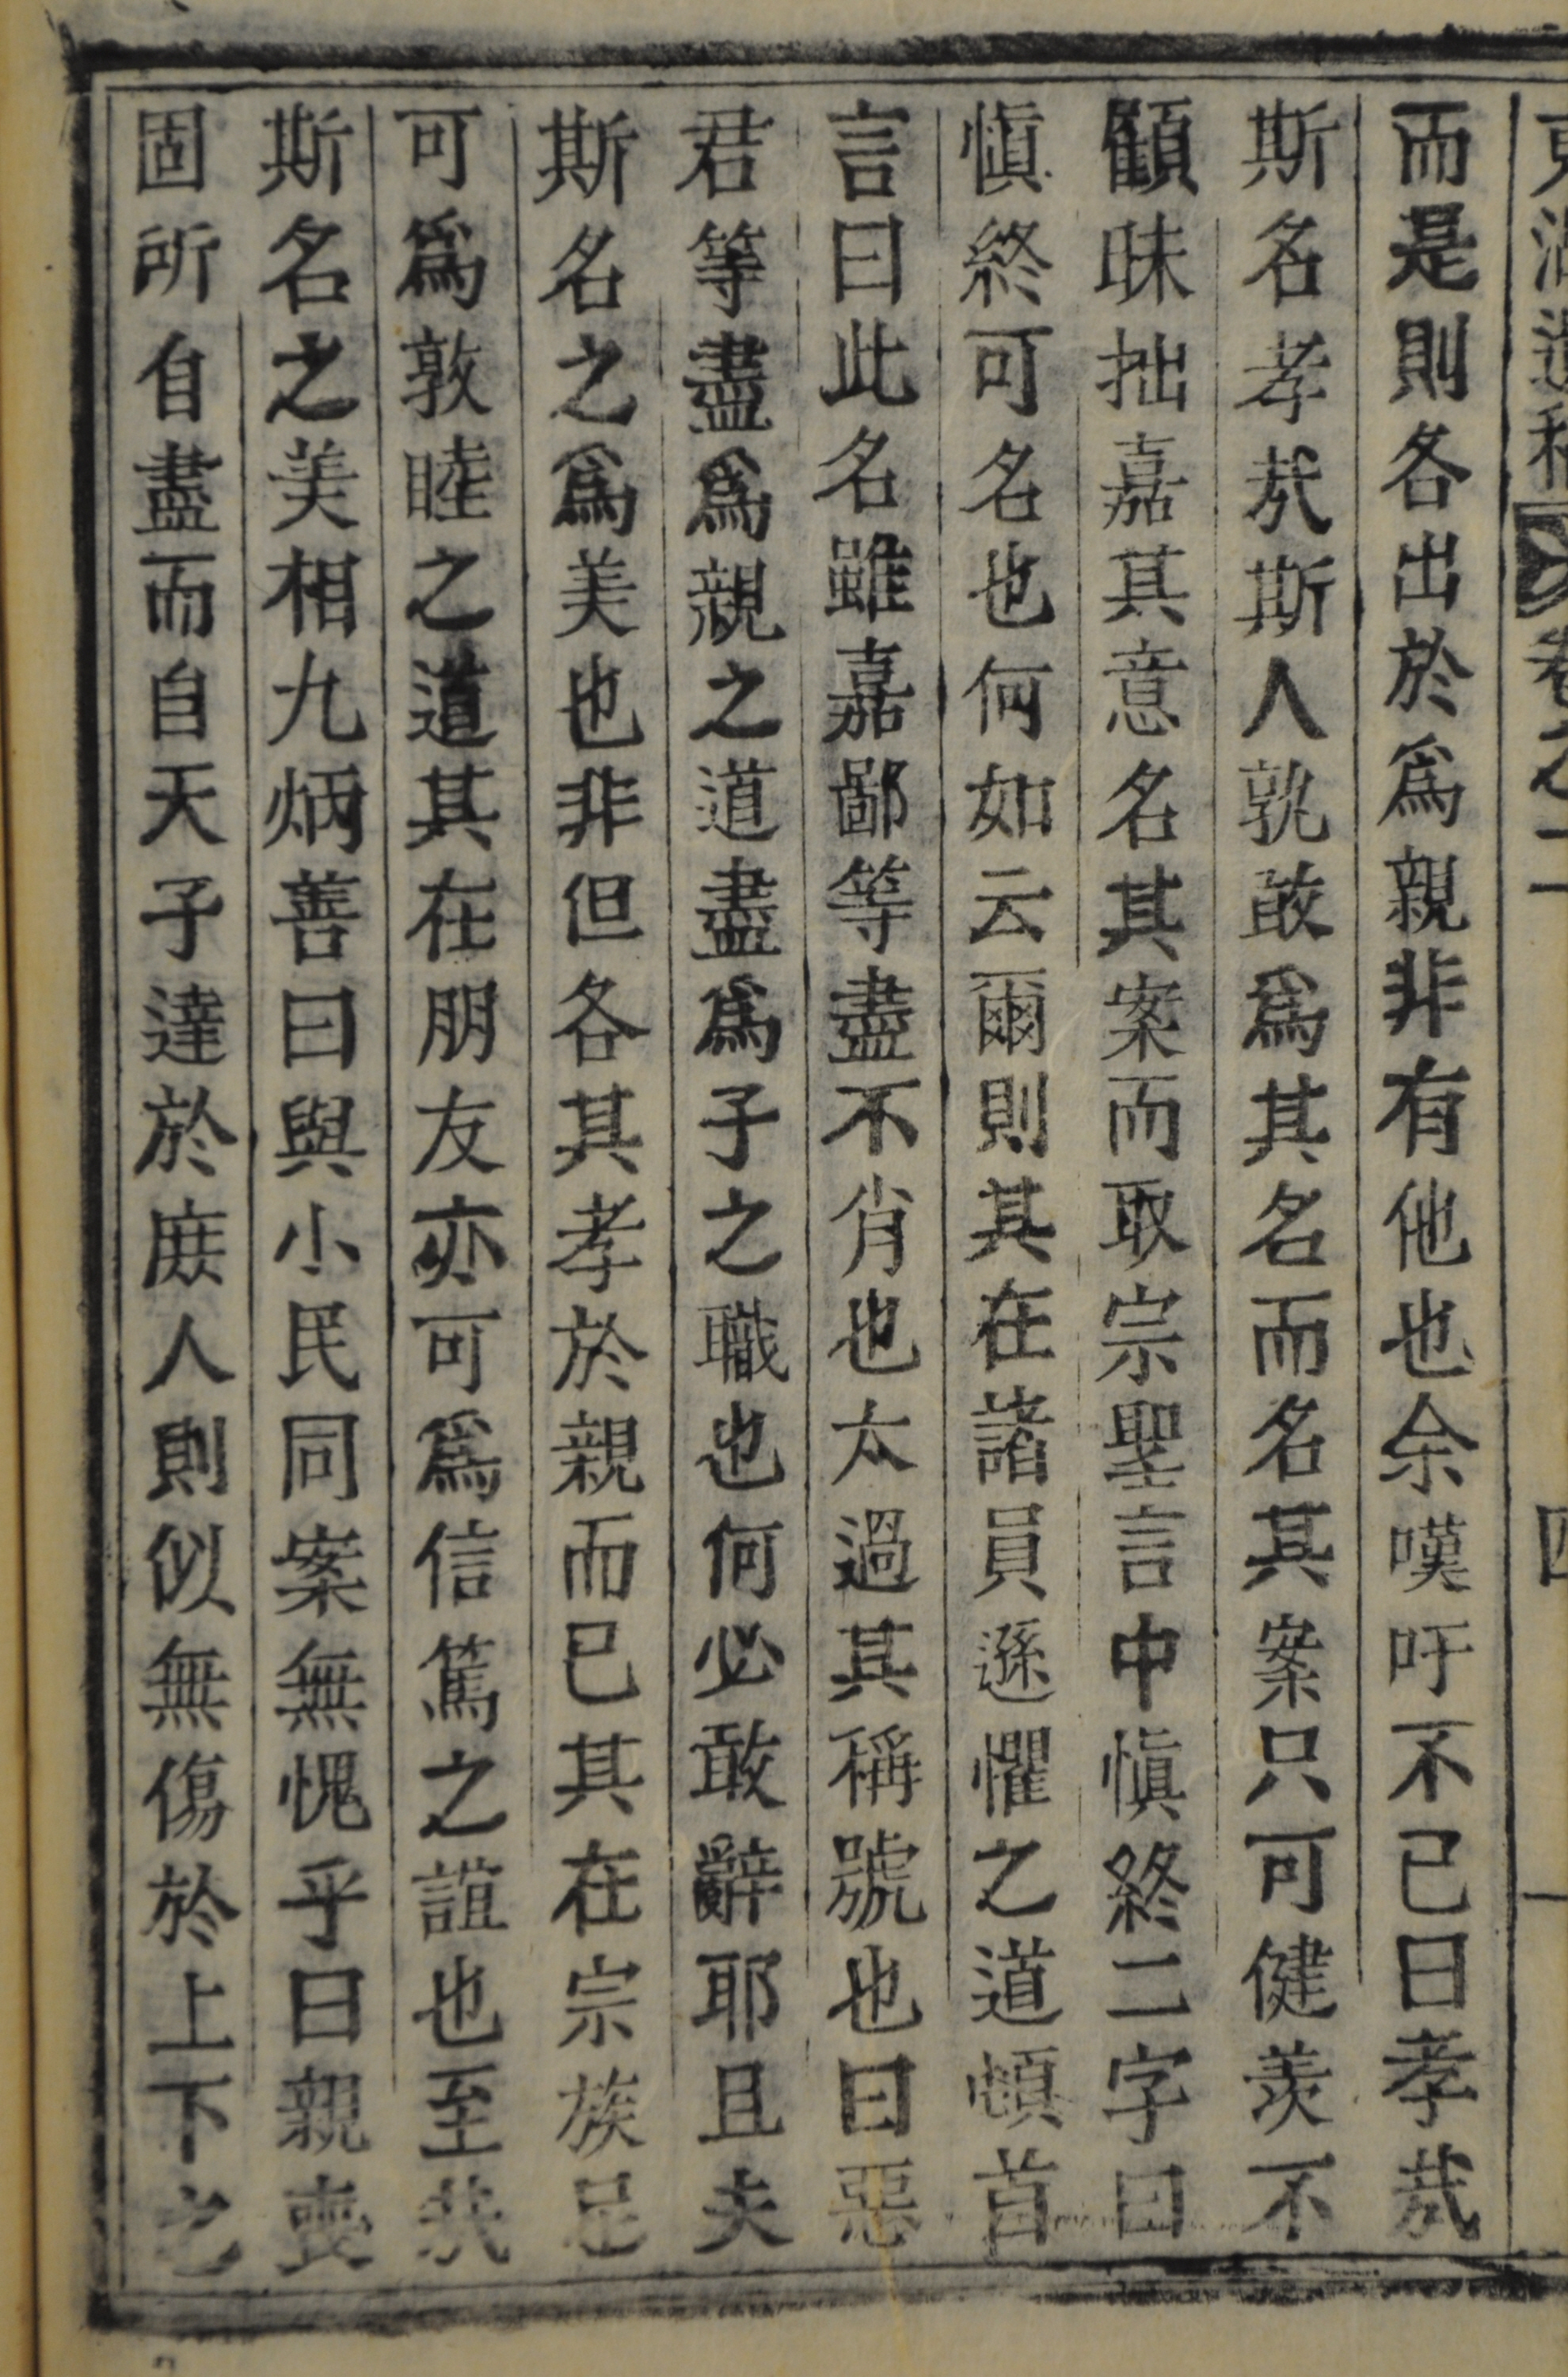 卷之二
四
而是則各出於爲親非有他也余嘆吁不已曰孝哉
斯名孝哉斯人孰敢爲其名而名其案只可健羨不
顧昧拙嘉其意名其案而取宗聖言中愼終二字曰
愼終可名也何如云爾則其在諸員遜懼之道頓首
言曰此名雖嘉鄙等盡不肖也太過其稱號也曰惡
君等盡爲親之道盡爲子之職也何必敢辭耶且夫
斯名之爲美也非但各其孝於親而已其在宗族足
可爲敦睦之道其在朋友亦可爲信篤之誼也至哉
斯名之美相九炳善曰與小民同案無愧乎曰親喪
固所自盡而自天子達於庶人則似無傷於上下之